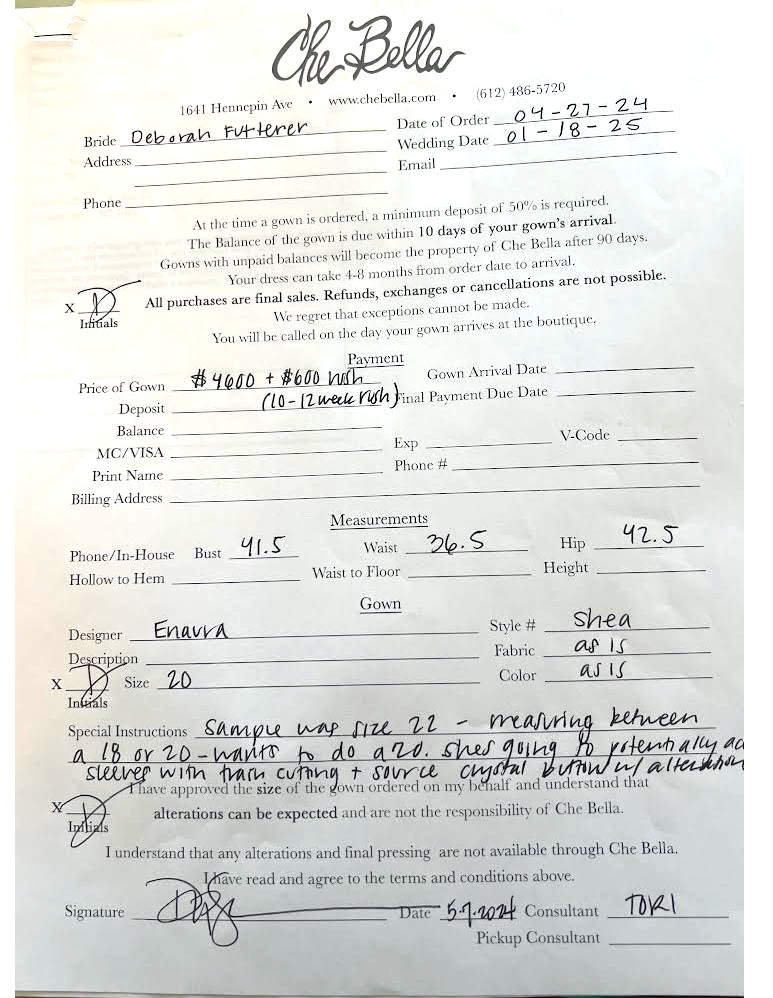 Che Bella
1641 Hennepin Ave • www.chebella.com • (612) 486-5720
Bride Deborah Futterer Date of Order 04-27-24
Address Wedding Date 01-18-25
Email
Phone
At the time a gown is ordered, a minimum deposit of 50% is required.
The Balance of the gown is due within 10 days of your gown's arrival.
Gowns with unpaid balances will become the property of Che Bella after 90 days.
Your dress can take 4-8 months from order date to arrival.
All purchases are final sales. Refunds, exchanges or cancellations are not possible.
X
Initials
We regret that exceptions cannot be made.
You will be called on the day your gown arrives at the boutique.
Payment
Price of Gown $4600 + $600 rush Gown Arrival Date
Deposit (10-12 week rush) Final Payment Due Date
Balance
MC/VISA Exp V-Code
Print Name Phone #
Billing Address
Measurements
Phone/In-House Bust 41.5 Waist 36.5 Hip 42.5
Hollow to Hem Waist to Floor Height
Gown
Designer Enaura Style # Shea
Description Fabric as is
X Size 20 Color as is
Initials
Special Instructions Sample was size 22 - measuring between
a 18 or 20 - wants to do a 20. shes going to potentially ad
sleeves with train cutting + source crystal button w/ alteration
I have approved the size of the gown ordered on my behalf and understand that
X
alterations can be expected and are not the responsibility of Che Bella.
Initials
I understand that any alterations and final pressing are not available through Che Bella.
I have read and agree to the terms and conditions above.
Signature Date 5-7-2024 Consultant TORI
Pickup Consultant